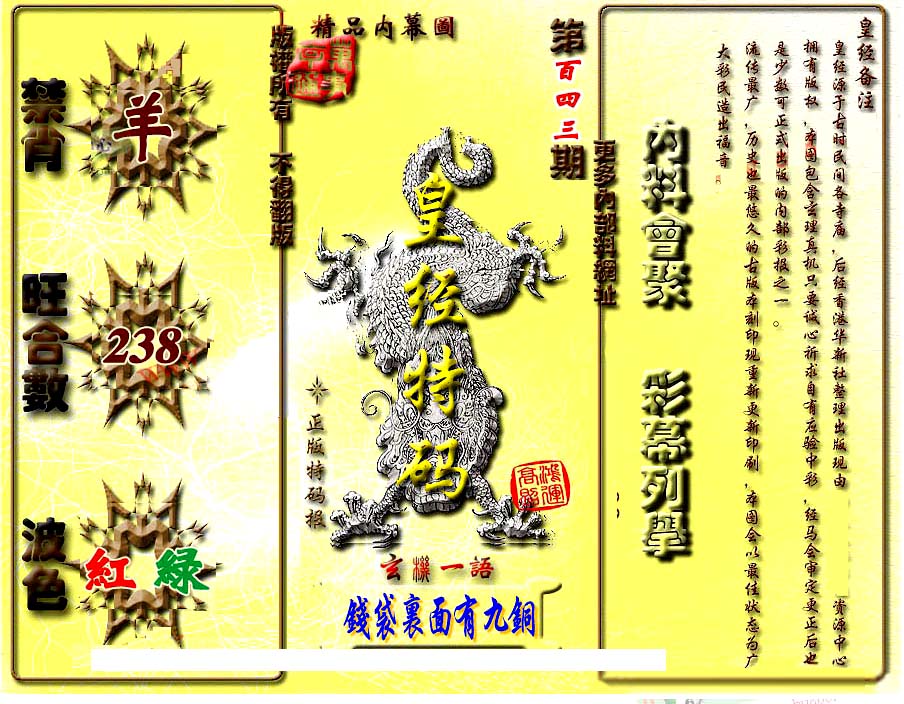 精品內幕圖
第百四三期
版權所有 不得翻版
更多內部料網址
禁肖
羊
旺合數
238
波色
紅 綠
皇经特码
正版特码报
鴻運高照
玄機一語
錢袋裏面有九銅
內料會聚 彩幕列舉
皇经备注
皇经源于古时民间各寺庙,后经香港华新社整理出版现由 资源中心
拥有版权,本图包含玄理真机只要诚心祈求自有应验中彩,经马会审定更正后也
是少数可正式出版的内部彩报之一。
流传最广,历史也最悠久的古版本刻印现重新更新印刷,本图会以最佳状态为广
大彩民造出福音